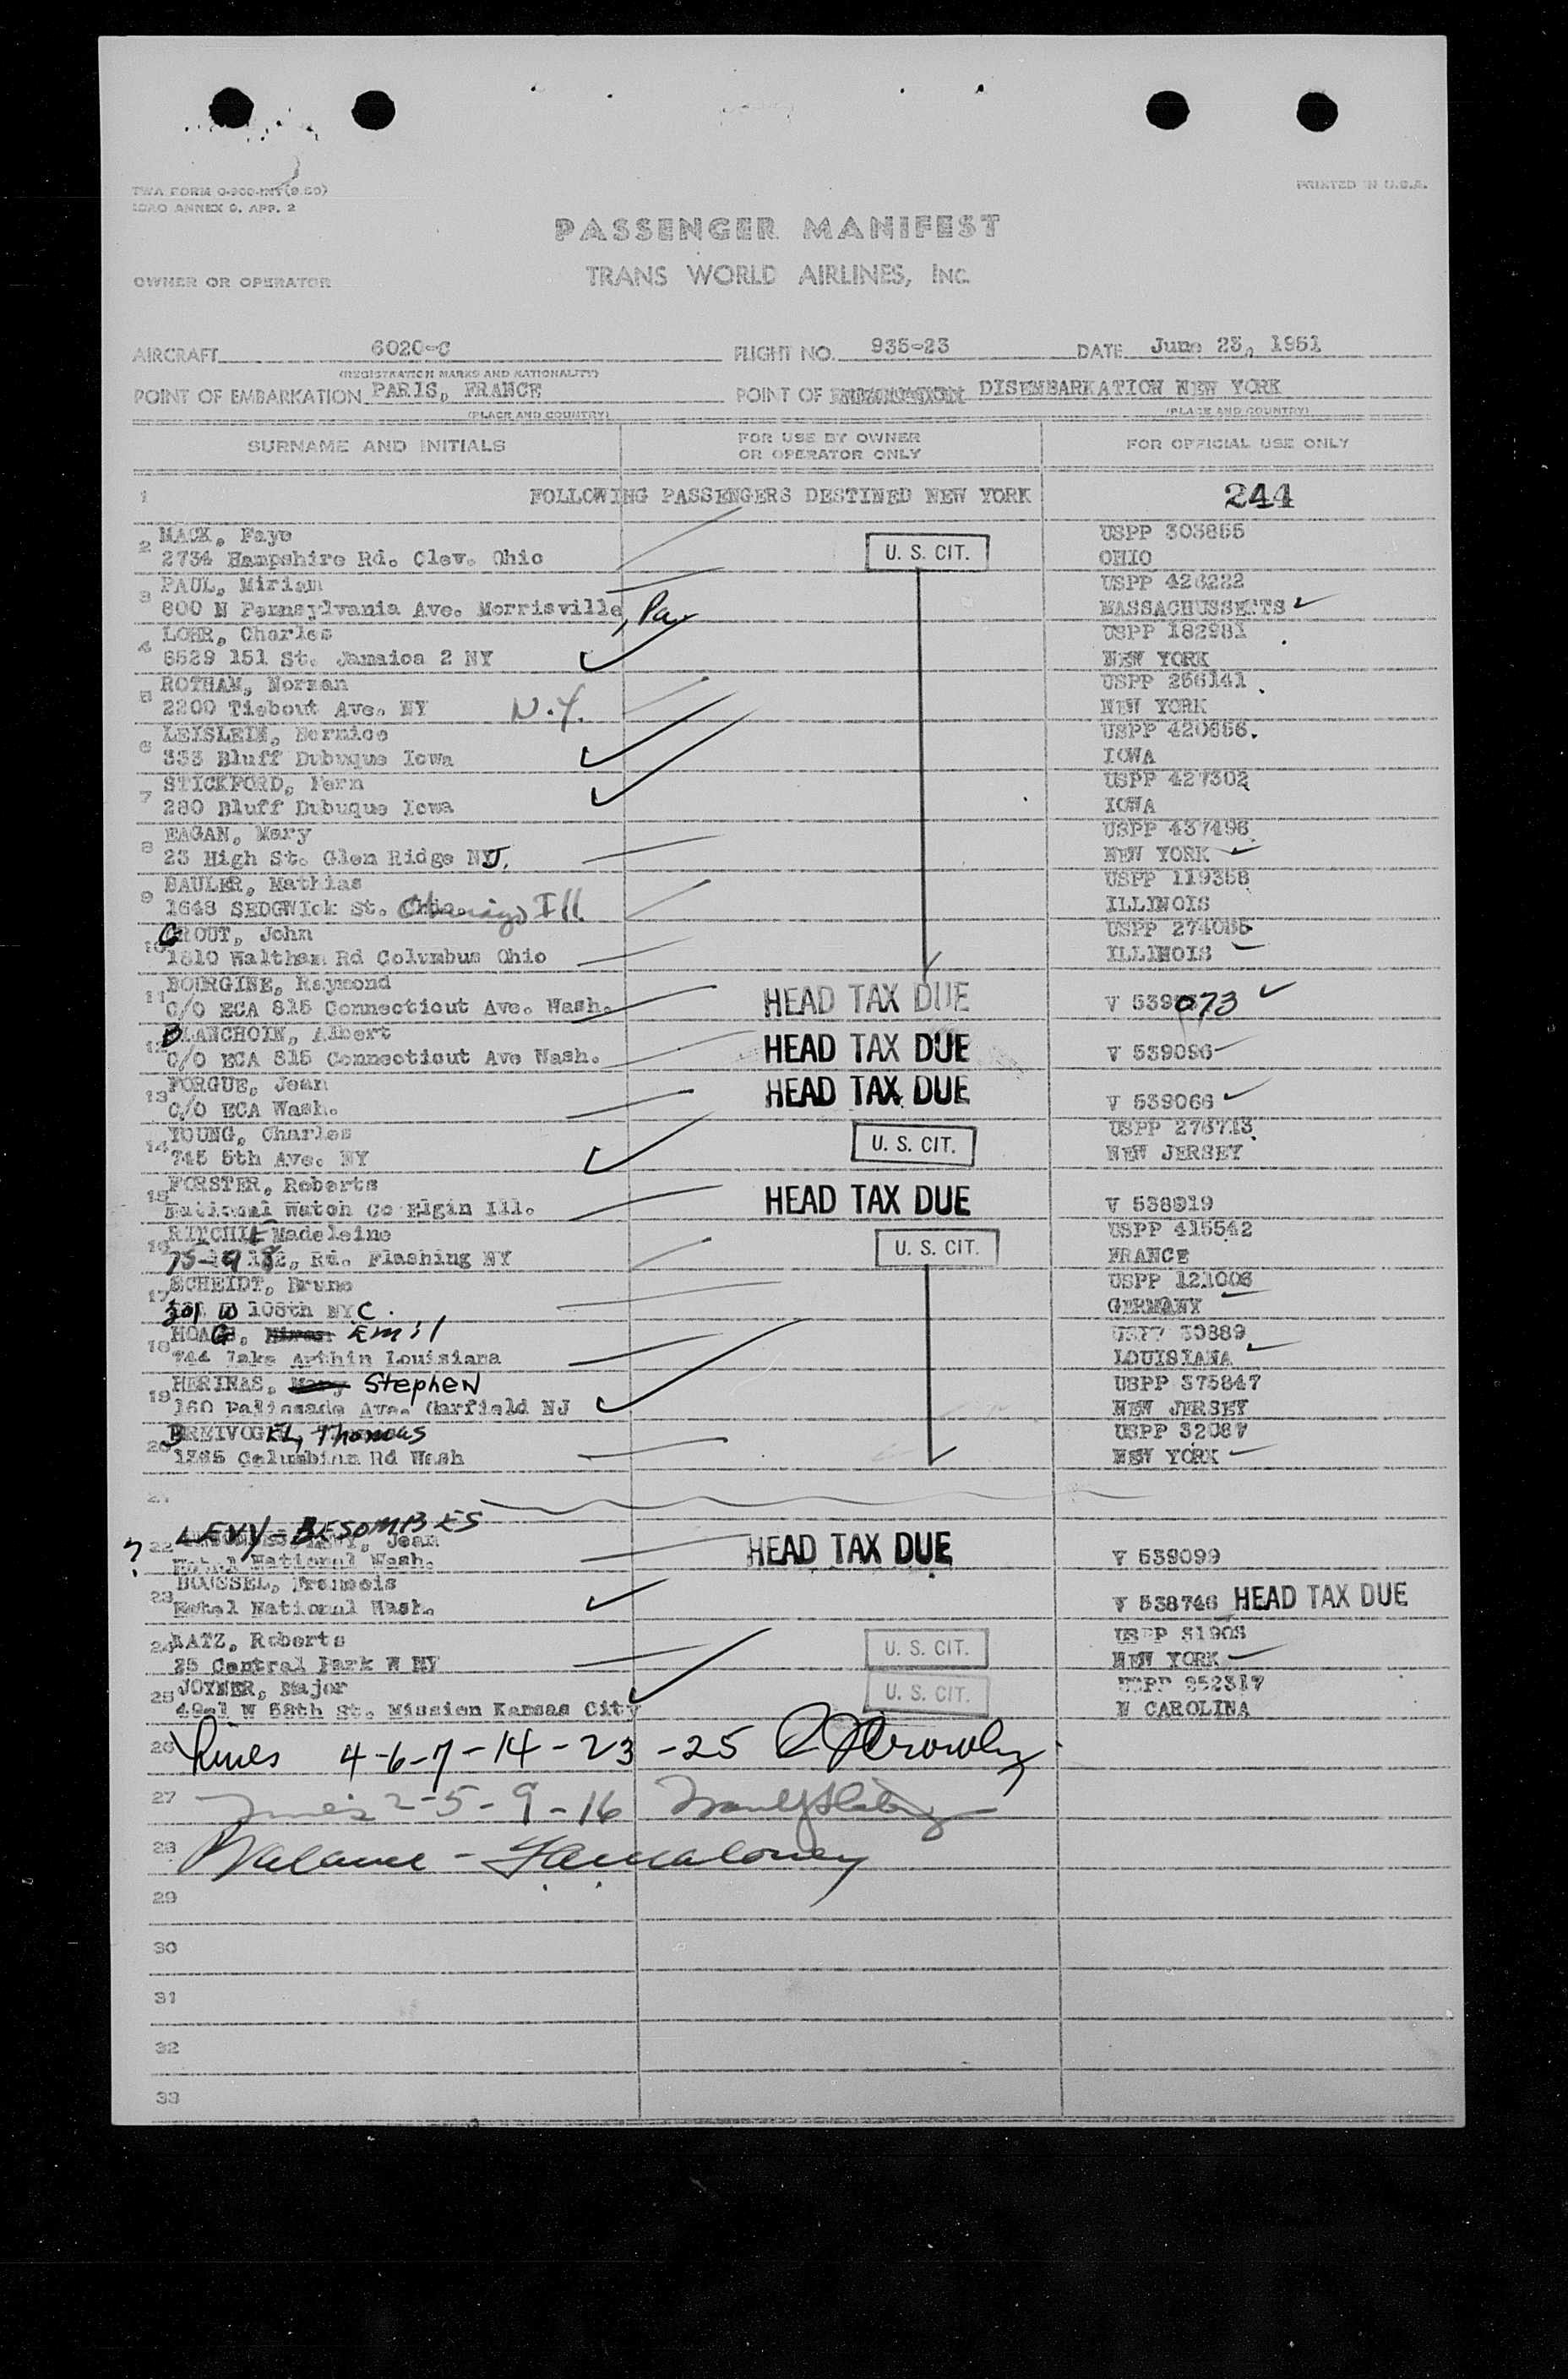 TWA FORM O-300-INT(9.50)
ICAO ANNEX 9. APP. 2
PRINTED IN U.S.A.
PASSENGER MANIFEST
OWNER OR OPERATOR TRANS WORLD AIRLINES, INC.
AIRCRAFT 6020-C FLIGHT NO. 935-23 DATE June 23, 1951
(REGISTRATION MARKS AND NATIONALITY)
POINT OF EMBARKATION PARIS, FRANCE POINT OF DISEMBARKATION NEW YORK
(PLACE AND COUNTRY) (PLACE AND COUNTRY)
SURNAME AND INITIALS FOR USE BY OWNER OR OPERATOR ONLY FOR OFFICIAL USE ONLY
1 FOLLOWING PASSENGERS DESTINED NEW YORK 244
2 MACK, Faye U. S. CIT. USPP 303855
2734 Hampshire Rd. Clev. Ohio OHIO
3 PAUL, Miriam USPP 426222
800 N Pennsylvania Ave. Morrisville, Pa. MASSACHUSSETTS
4 LOHR, Charles USPP 182981
8529 151 St. Jamaica 2 NY NEW YORK
5 ROTHAM, Norman USPP 256141
2200 Tiebout Ave. NY N.Y. NEW YORK
6 LEYSLEIN, Bernice USPP 420656
333 Bluff Dubuque Iowa IOWA
7 STICKFORD, Fern USPP 427302
280 Bluff Dubuque Iowa IOWA
8 EAGAN, Mary USPP 437496
23 High St. Glen Ridge NJ. NEW YORK
9 BAULER, Mathias USPP 119358
1648 SEDGWIck St. Chicago Ill ILLINOIS
10 GROUT, John USPP 274055
1810 Waltham Rd Columbus Ohio ILLINOIS
11 BOURGINE, Raymond HEAD TAX DUE
C/O ECA 815 Connecticut Ave. Wash. V 539073
12 BLANCHOIN, Albert HEAD TAX DUE
C/O ECA 815 Connecticut Ave Wash. V 539096
13 FORGUE, Jean HEAD TAX DUE
C/O ECA Wash. V 539066
14 YOUNG, Charles U. S. CIT. USPP 276713
745 5th Ave. NY NEW JERSEY
15 FORSTER, Roberts HEAD TAX DUE
National Watch Co Elgin Ill. V 538919
16 RITCHIE Madeleine U. S. CIT. USPP 415542
Rd. Flushing NY FRANCE
17 SCHEIDT, Bruno USPP 121006
301 W 108th NYC. GERMANY
18 HOAG, Emil 30889
744 Lake Arthin Louisiana LOUISIANA
19 HERINAS, Stephen USPP 375847
160 Palissade Ave. Garfield NJ NEW JERSEY
20 BREIVOGEL, Thomas USPP 32087
1365 Columbian Rd Wash NEW YORK
21
LEVY-BESOMBES
? 22 Jean HEAD TAX DUE
Hotel National Wash. V 539099
23 BOUSSEL, Francois
Hotel National Wash. V 538746 HEAD TAX DUE
24 KATZ, Roberts U. S. CIT. USPP 31908
25 Central Park W NY NEW YORK
25 JOYNER, Major U. S. CIT. USPP 352317
W 58th St. Mission Kansas City N CAROLINA
26 Lines 4-6-7-14-23-25
27 Lines 2-5-9-16
28 Balance -
29
30
31
32
33